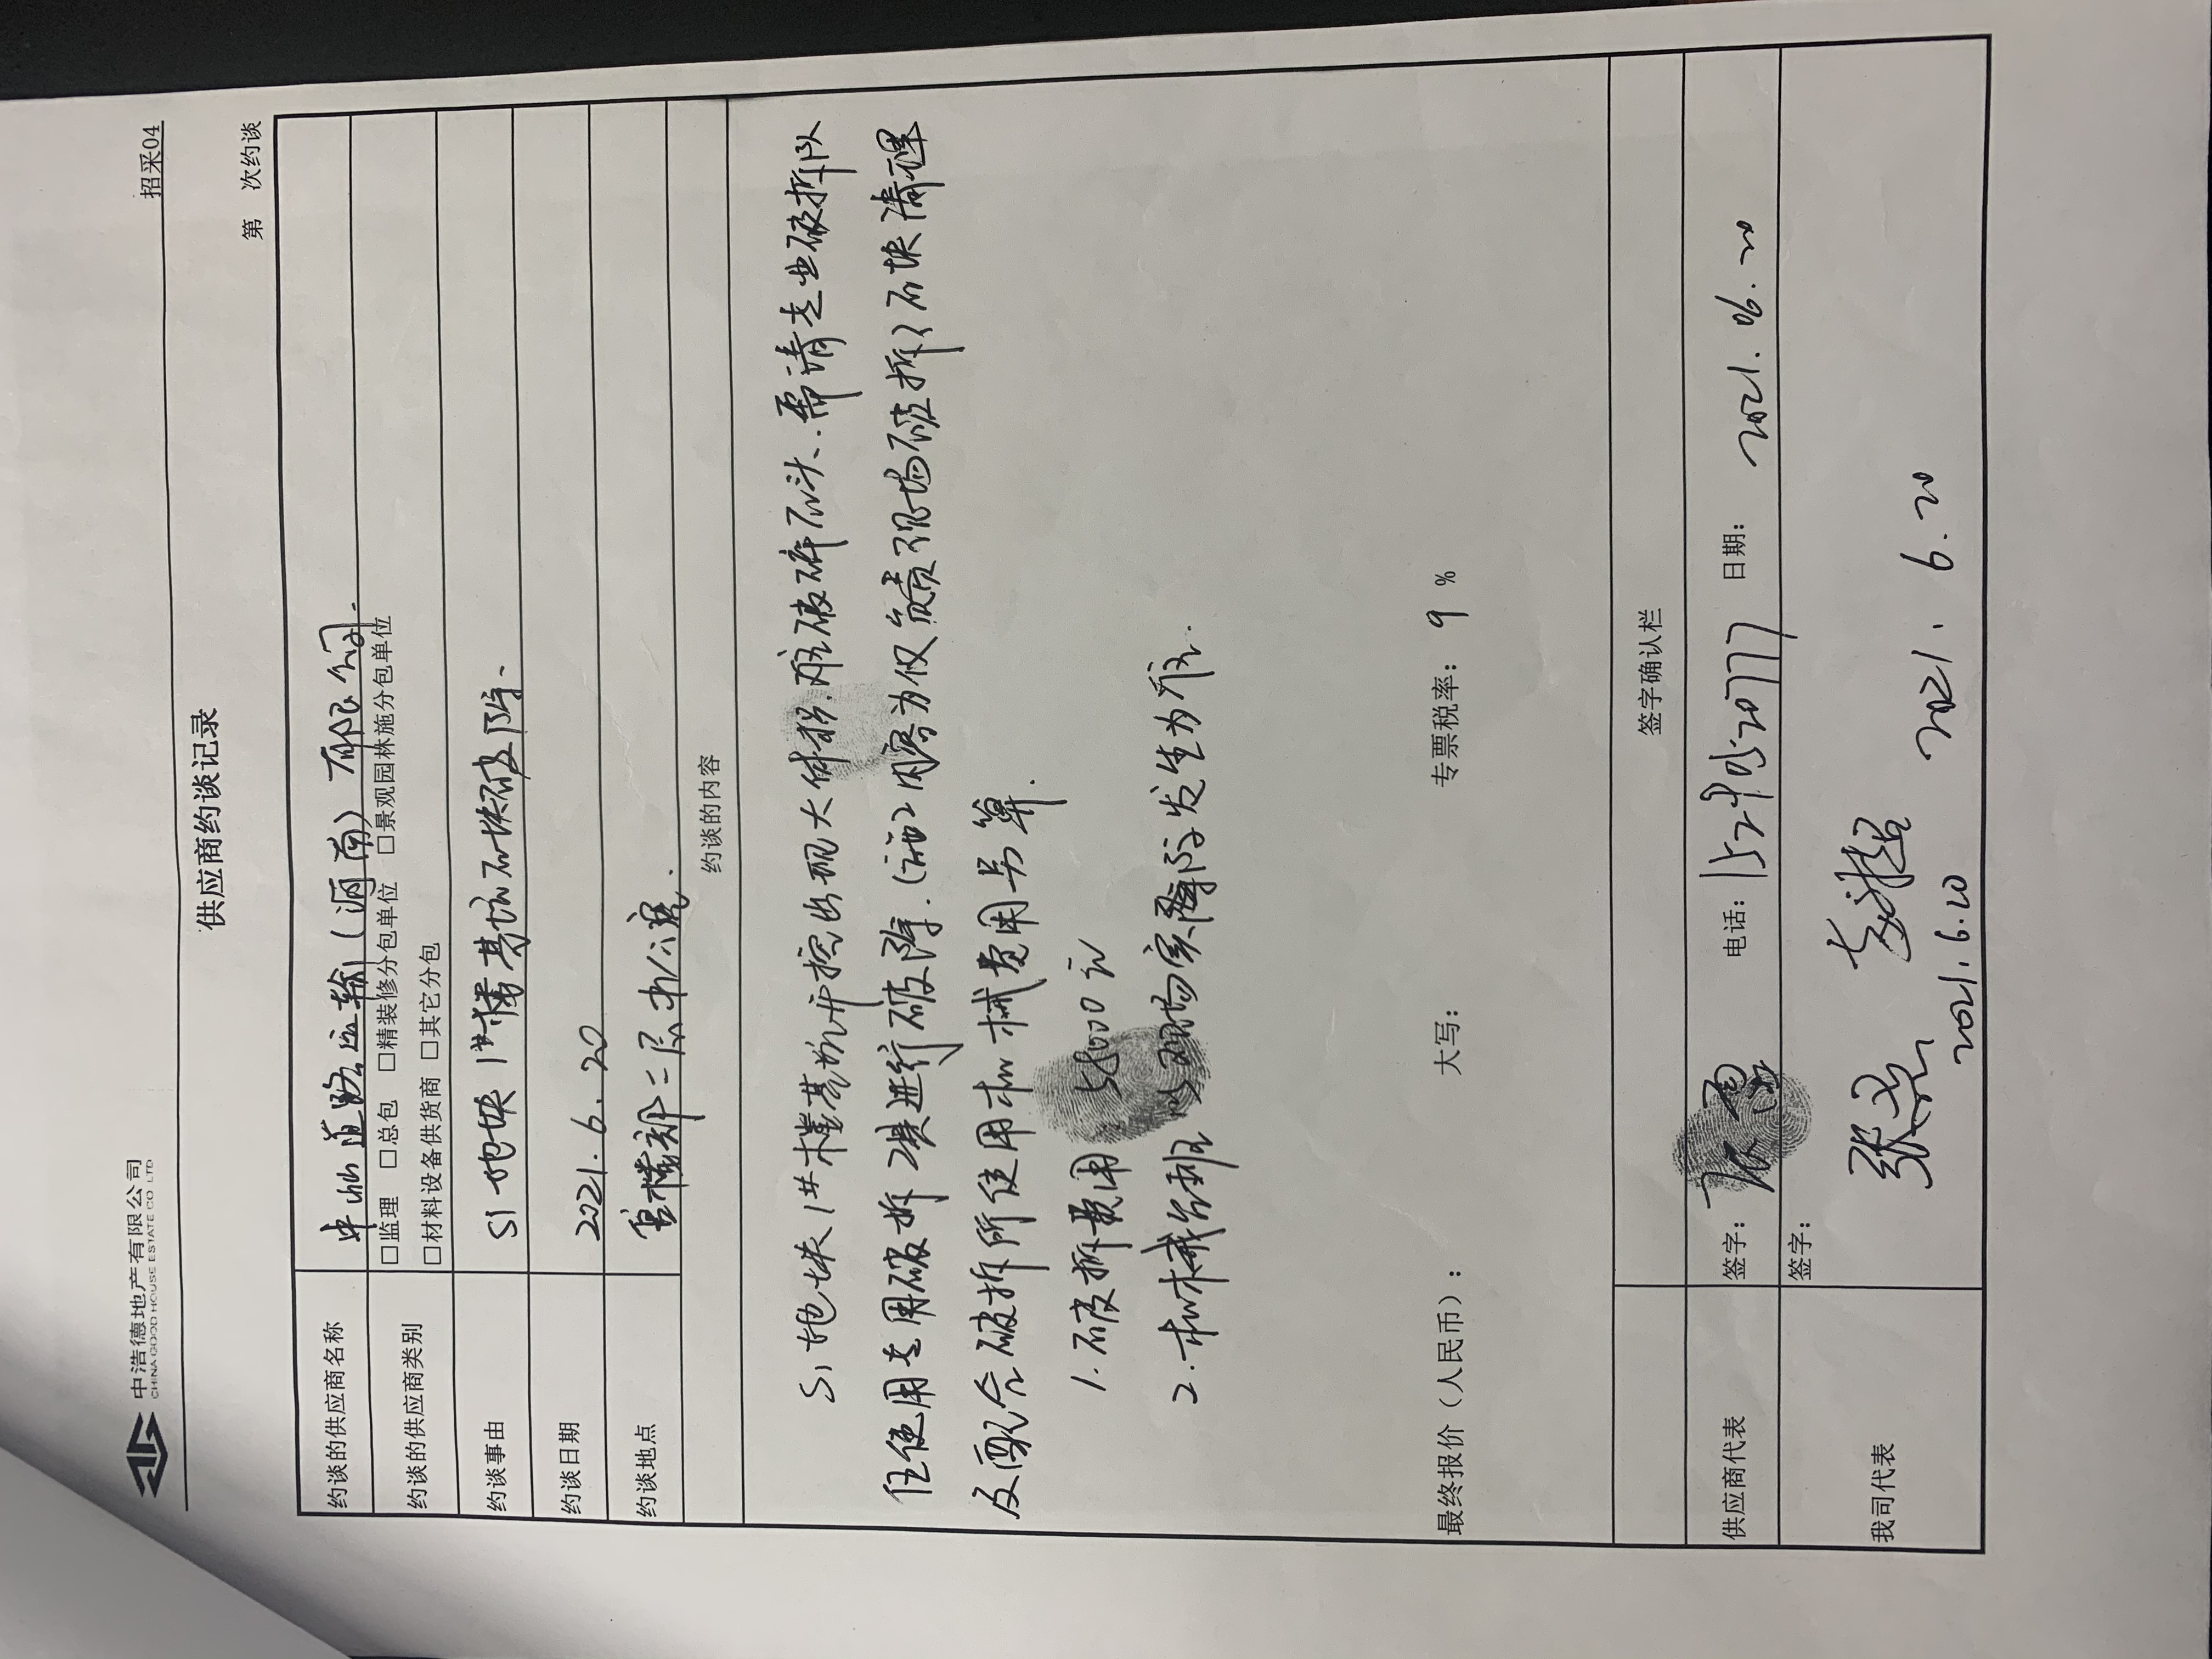 中浩德地产有限公司
CHINA GOOD HOUSE ESTATE CO LTD
招采04
供应商约谈记录
第 次约谈
约谈的供应商名称 中 道路运输(河南)有限公司.
约谈的供应商类别 □监理 □总包 □精装修分包单位 □景观园林施分包单位
□材料设备供货商 □其它分包
约谈事由 S1地块1#楼基坑石块破除.
约谈日期 2021.6.20
约谈地点 售楼部二层办公室.
约谈的内容
S1地块1#楼基坑开挖出现大体积.难破碎石头.需请专业破拆队
伍使用专用破拆 进行破除.( 内容为仅负责现场破拆)石块清理
及配合破拆所使用机械费用另算.
1.破拆费用 58000元
2.机械台班 以现场实际发生为准.
最终报价(人民币): 大写: 专票税率: 9 %
签字确认栏
供应商代表 签字: 电话: 日期: 2021.06.20
我司代表 签字: 张 2021.6.20
2021.6.20